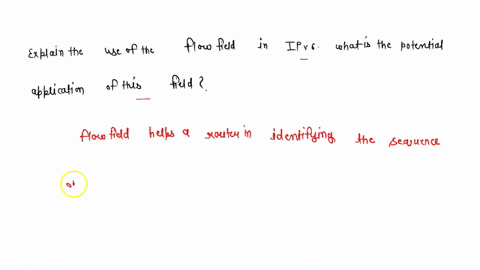 Explain the use of the flow field in IPv6. what is the potential
application of this field?
flow field helps a router in identifying the sequence